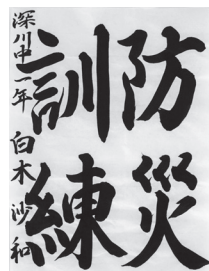 防災
訓練
深川中一年 白木沙和